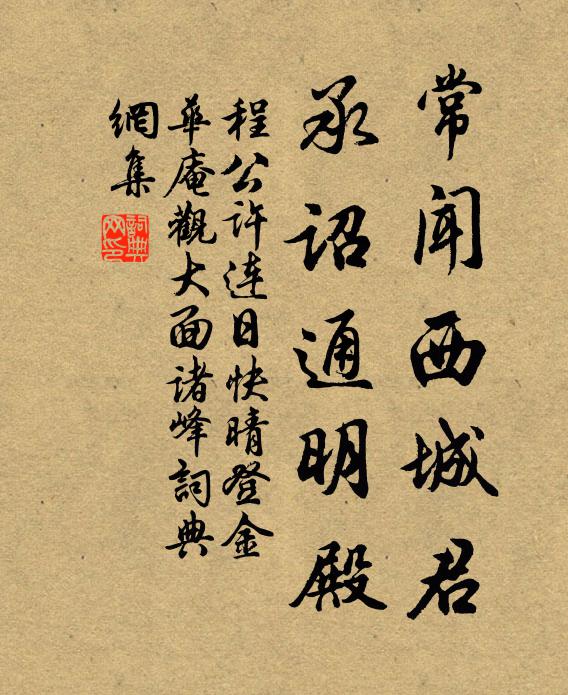 常闻西城君
承诏通明殿
程公许连日快晴登金
華庵觀大面诸峰詞典
網集
詞典
网印